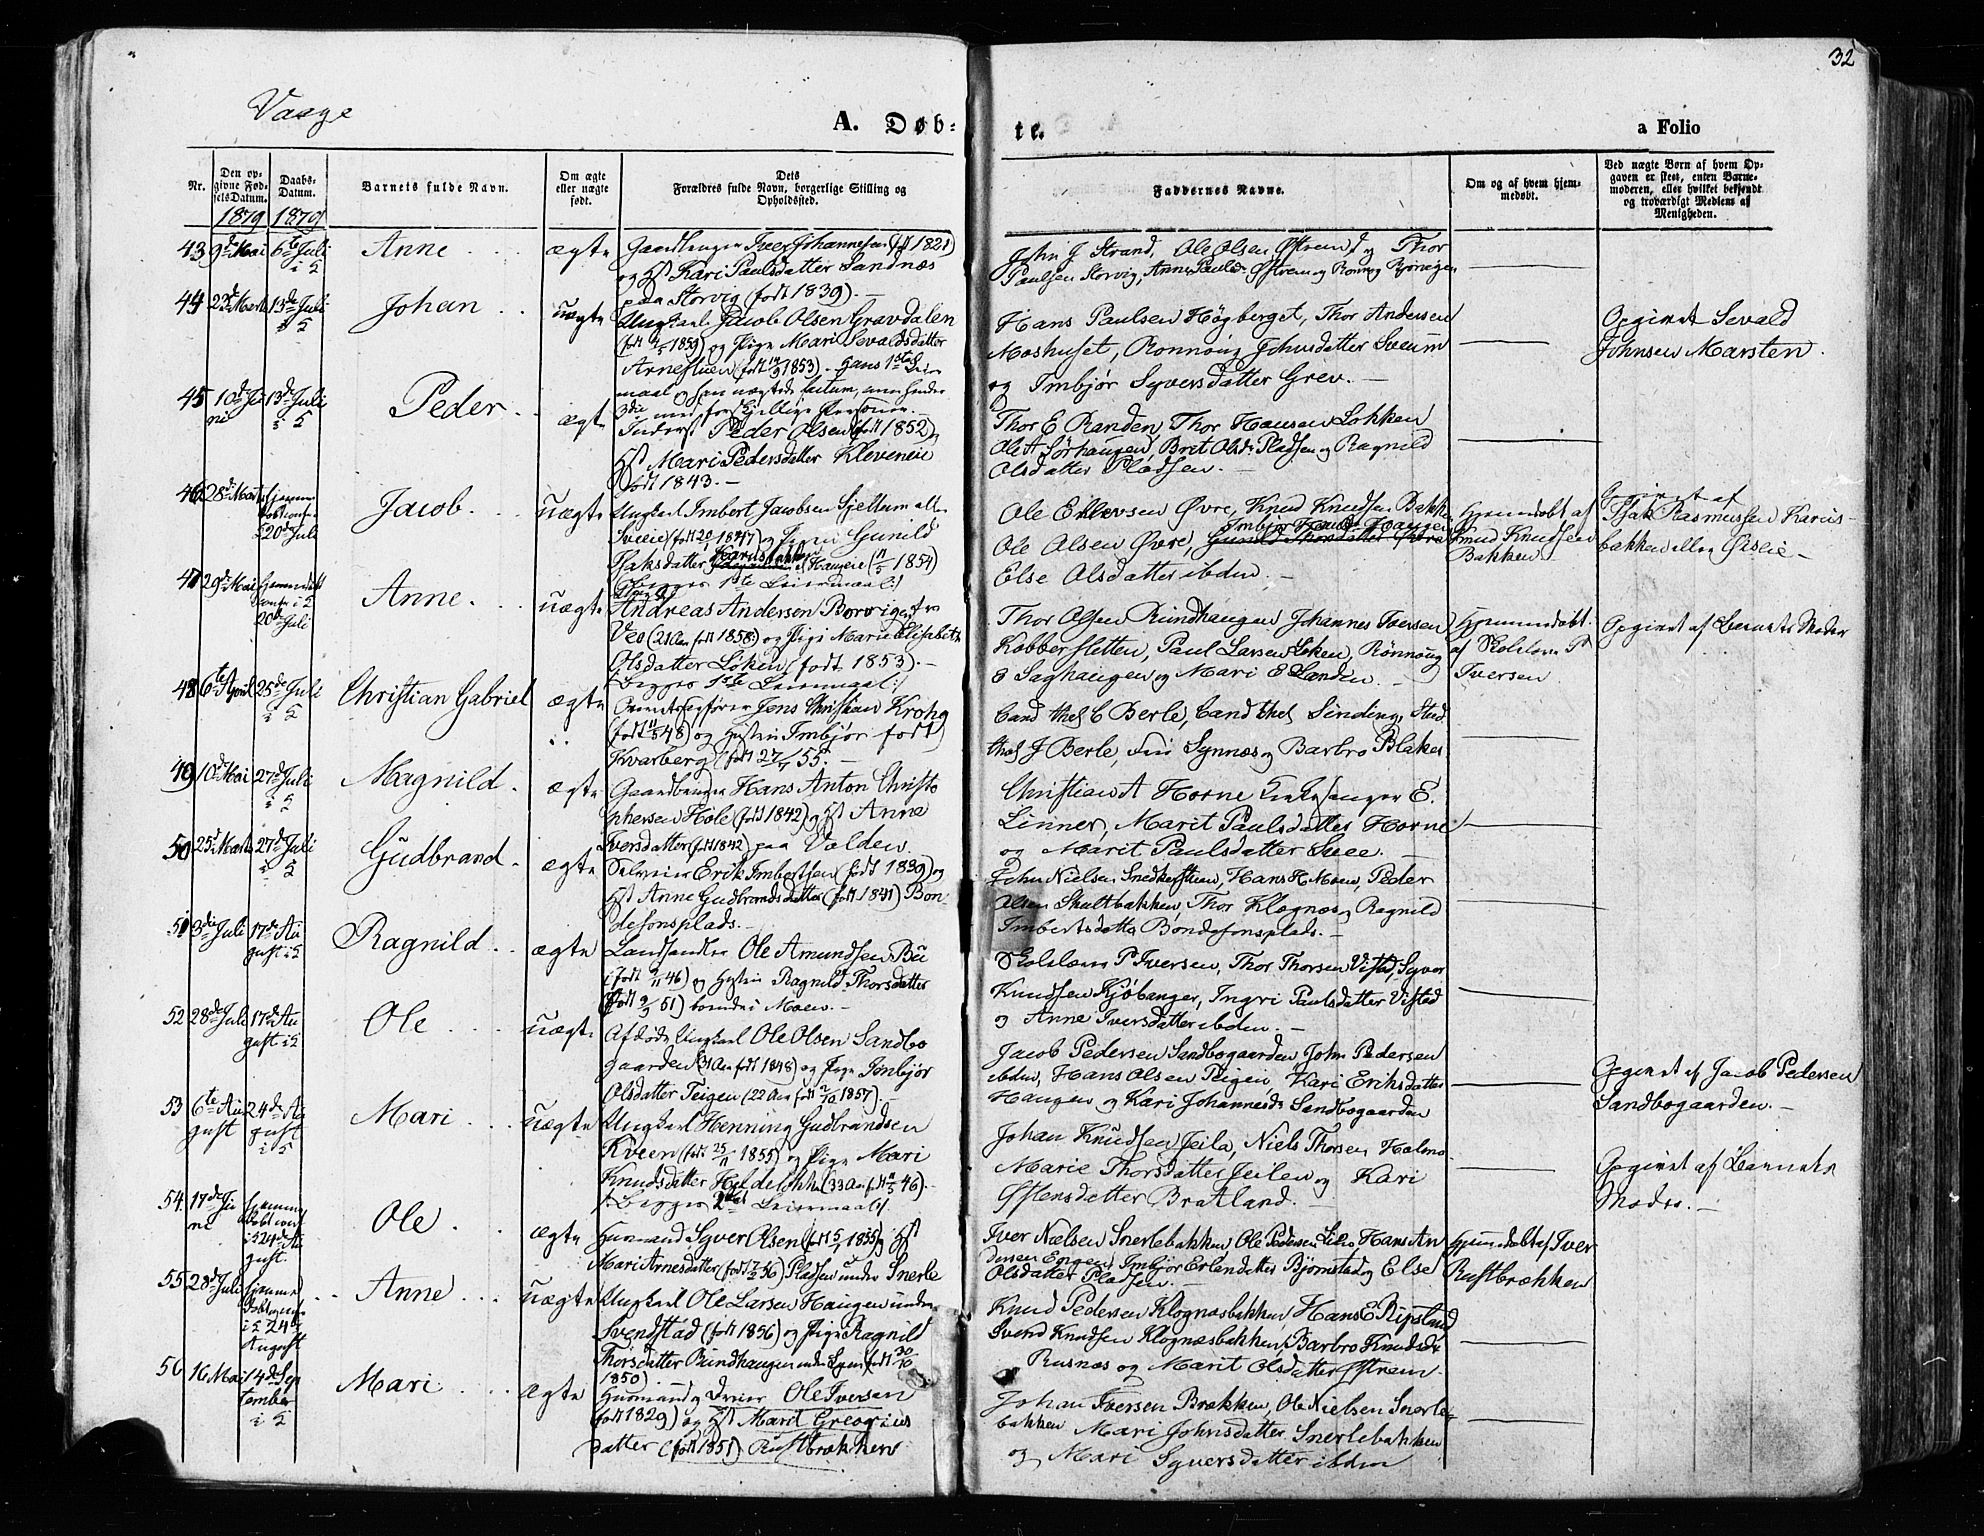 32
Vaage
A. Døb-
te.
a Folio
Nr.
Den op-
givne Fød-
selsDatum.
Daabs-
Datum.
Barnets fulde Navn.
Om ægte
eller uægte
født.
Dets
Forældres fulde Navn, borgerlige Stilling og
Opholdssted.
Faddernes Navne.
Om og af hvem hjem-
medøbt.
Ved uægte Børn af hvem Op-
gaven er skeet, enten Barne-
moderen, eller hvilket bekjendt
og troværdigt Medlem af
Menigheden.
1879 1879
43 9de Mai 6te Juli Anne ægte Gaardbruger Iver Johannesen (født 1821)
i S og Hst Kari Paulsdatter Sandnæs
paa Storvig (født 1839). —
John J Strand, Ole Olsen Østrem og Thor
Paulsen Storvig, Anne Paulsdr Østrem og Ronnog
44 22de Marts 13de Juli Johan uægte Ungkarl Jacob Olsen Gravdalen
i S (født 1859) og Pige Mari Sevaldsdatter
(født 1853). Hans 1ste Leier-
maal og han nægtede factum, men hendes
3die med forskjellige Personer. —
Hans Paulsen Høgberget, Thor Andersen
Moshuset, Rønnoug Johnsdatter Sveum
og Imbjør Syversdatter Grev. —
Opgivet Sevald
Johnsen Marsten.
45 10de Ju 13de Juli Peder ægte Inderst Peder Olsen (født 1852)
ni i S Hst Mari Pedersdatter Kleveneie
født 1843. —
Thor E Randen, Thor Hansen Løkken
Ole A Sørhaugen, Brit Olsdr Pladsen og Ragnild
Olsdatter Pladsen. —
46 28de Marts Jacob uægte Ungkarl Imbert Jacobsen Sjellum
i S 20de Juli Sveeie (født 1847) og Pigen Gunild
Isaksdatter Haugeie 1854)
begges 1ste Leiermaal
Ole Ellevsen Øvre, Knud Knudsen Bakke
Ole Olsen Øvre, Gunild Thorsdatter Øvre
Else Olsdatter ibdm. —
Hjemmedøbt af
Knud Knudsen
Bakken
Opgivet af
Isak Rasmussen Karus-
bakken eller
47 29de Mai Hjemmedøbt Anne uægte Andreas Andersen Borvigen fra
20de Juli Veo (21 Aar født 1858) og Pige Marie Elisabeth
Olsdatter Løken (født 1853). —
Begges 1ste Leiermaal
Thor Olsen Rundhaugen, Johannes Iversen
Kobberfletten, Paul Larsen Løken, Rønnoug
E Saghaugen og Mari E Landen —
Hjemmedøbt
af Skolelærer P
Iversen
Opgivet af Barnets Moder
48 6te April 25de Juli Christian Gabriel ægte Jens Christian Krohg
i S (født 48) og Hustru Imbjør født
Kvarberg (født 27/ 55. —
Cand theol C Berle, Cand theol Sinding, Stud
theol J Berle, Frk Synnæs og Barbro Blakar
49 10de Mai 27de Juli Magnild ægte Gaardbruger Hans Anton Christo
i S phersen Hole (født 1842) og Hst Anne
Iversdatter (født 1842) paa Volden.
Christian A Horne Kirkesanger E.
Linner, Marit Paulsdatter Horne
og Marit Paulsdatter Svee. —
50 25de Marts 27de Juli Gudbrand ægte Selveier Erik Imbertsen (født 1839) og
i S Hst Anne Gudbrandsdatter (født 1841) Bon-
defonsplads. —
John Nielsen, Hans H Moen, Peder
Olsen Skaltbakken, Thor Klognæs og Ragnild
Imbertsdatter Bondefonsplads. —
51 3die Juli 17de Au Ragnild ægte Landhandler Ole Amundsen Bu
gust i S (født 46) og Hustru Ragnild Thorsdatter
(født 51) boende i Moen. —
Skolelærer P Iversen, Thor Thorsen Vistad, Syver
Knudsen Kjøbanger, Ingri Paulsdatter Vistad
og Anne Iversdatter ibdm. —
52 28de Juli 17de Au Ole uægte Afdøde Ungkarl Ole Olsen Sandbo
gust i S gaarden (31 Aar født 1848) og Pige Imbjør
Olsdatter Teigen (22 Aar født 2/10 1857). —
Jacob Pedersen Sandbogaarden, John Pedersen
ibdm, Hans Olsen Teigen, Kari Eriksdatter
Haugen og Kari Johannesdr Sandbogaarden
Opgivet af Jacob Pedersen
Sandbogaarden. —
53 6te Au 24de Au Mari uægte Ungkarl Henning Gudbrandsen
gust gust i S Kveen (født 25/11 1855) og Pige Mari
Knudsdatter (33 Aar født 46).
Begges 2det Leiermaal
Johan Knudsen Jeila, Niels Thorsen Holmo
Marie Thorsdatter Jeilen og Kari
Østensdatter Bratland. —
Opgivet af Barnets
Moder. —
54. 17de Ju Ole ægte Husmand Syver Olsen (født 1855) og Hst
ni i S 24de Au Mari Arnesdatter (født 56) Pladsen under Snerle
gust.
Iver Nielsen Snerlebakken, Ole Pedersen, Hans An
dersen Engen, Imbjør Erlendatter Bjørnstad og Else
Olsdatter Pladsen. —
Hjemmedøbt af Iver
Rustbrækken
55 28de Juli Hjemme Anne uægte Ungkarl Ole Larsen Haugen under
i S 24de Svendstad (født 1856) og Pige Ragnild
August Thorsdatter Rundhaugen under (født 30/10
1850).
Knud Pedersen Klognæsbakken, Hans E Ripsland
Svend Knudsen Klognæsbakken, Barbro Knudsdr
Rusnæs og Marit Olsdatter Østrem
56 16 Mai 14de Sep Mari ægte Husmand og Ole Iversen
tember (født 1829) og Hst Marit Gregorius
i S datter (født 1851) Rustbrækken
Johan Iversen Brækken, Ole Nielsen Snerle-
bakken Mari Johnsdatter Snerlebakken
og Mari Syversdatter ibdm